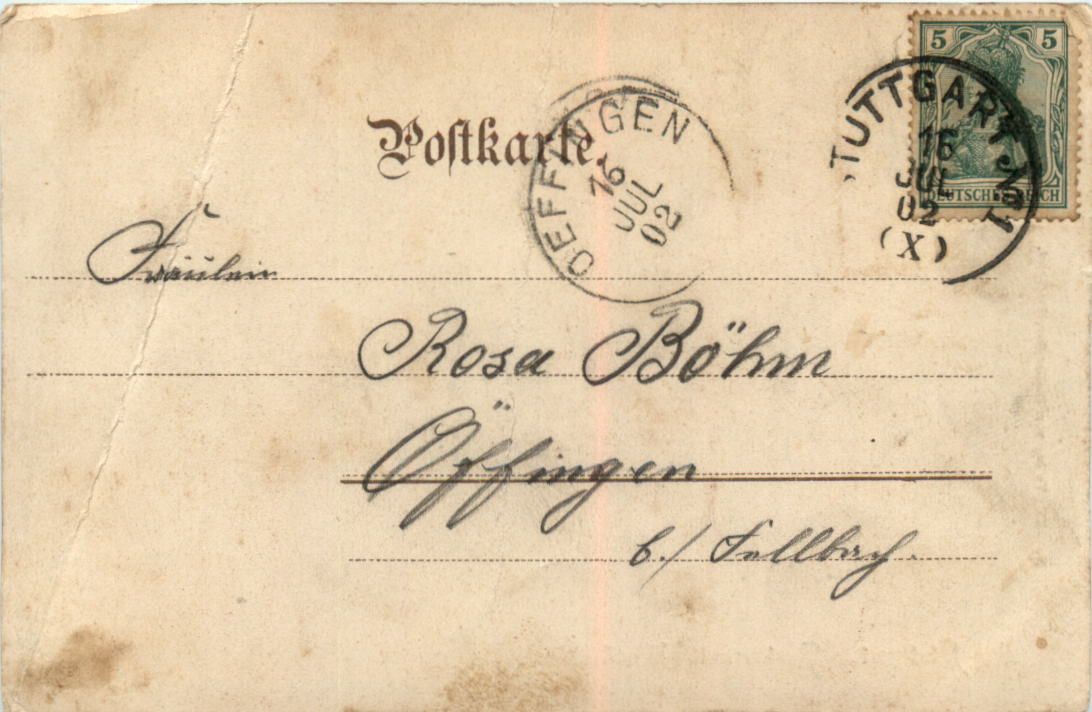 Postkarte.
5 5
DEUTSCHES REICH
STUTTGART No 1
16
JUL
02
(X)
OEFFINGEN
16
JUL
02
Fräulein
Rosa Böhm
Öffingen
b./ Fellbach.